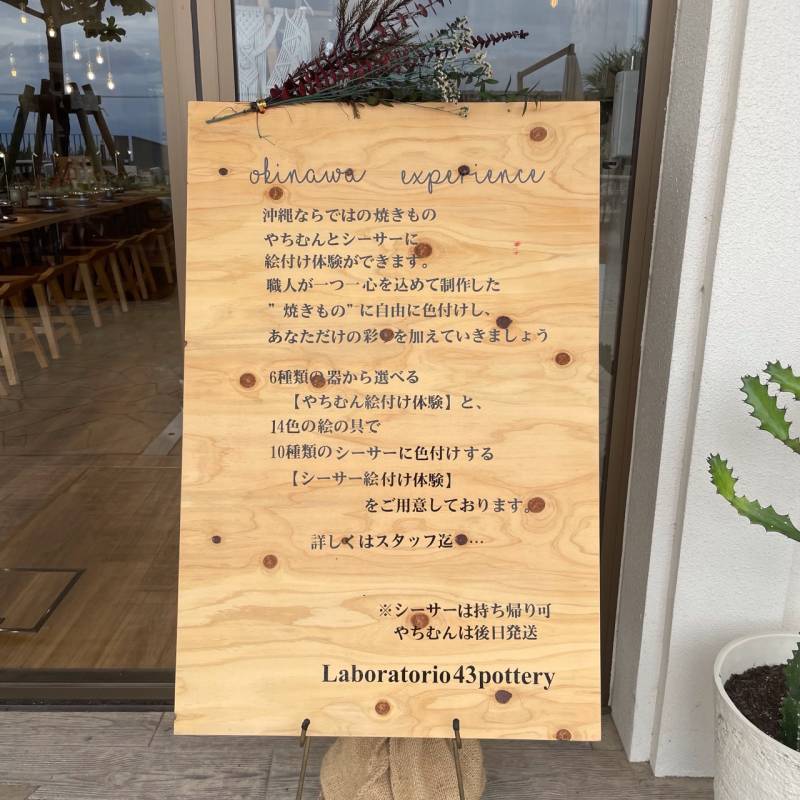 okinawa experience
沖縄ならではの焼きもの
やちむんとシーサーに
絵付け体験ができます。
職人が一つ一心を込めて制作した
"焼きもの"に自由に色付けし、
あなただけの彩りを加えていきましょう
6種類の器から選べる
【やちむん絵付け体験】と、
14色の絵の具で
10種類のシーサーに色付けする
【シーサー絵付け体験】
をご用意しております。
詳しくはスタッフ迄……
※シーサーは持ち帰り可
やちむんは後日発送
Laboratorio43pottery